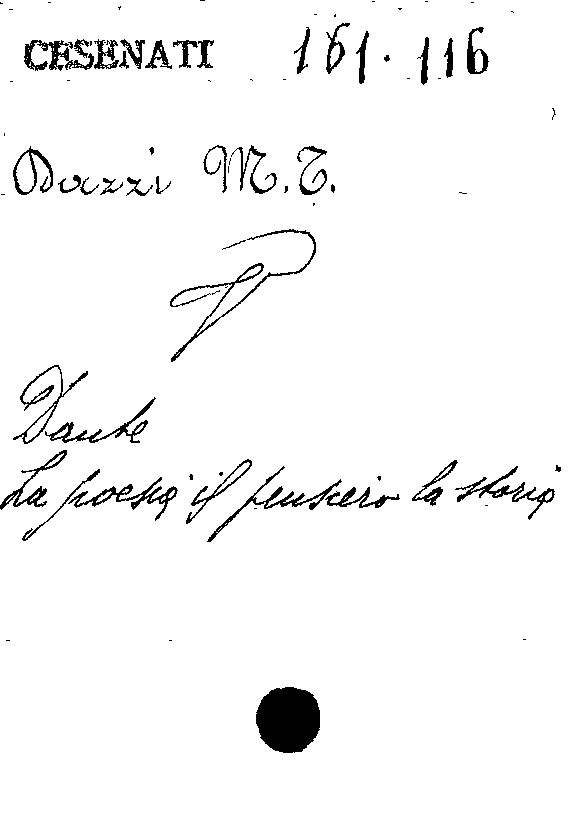 CESENATI 161.116
Dazzi M.T.
Dante
La poesia il pensiero la storia